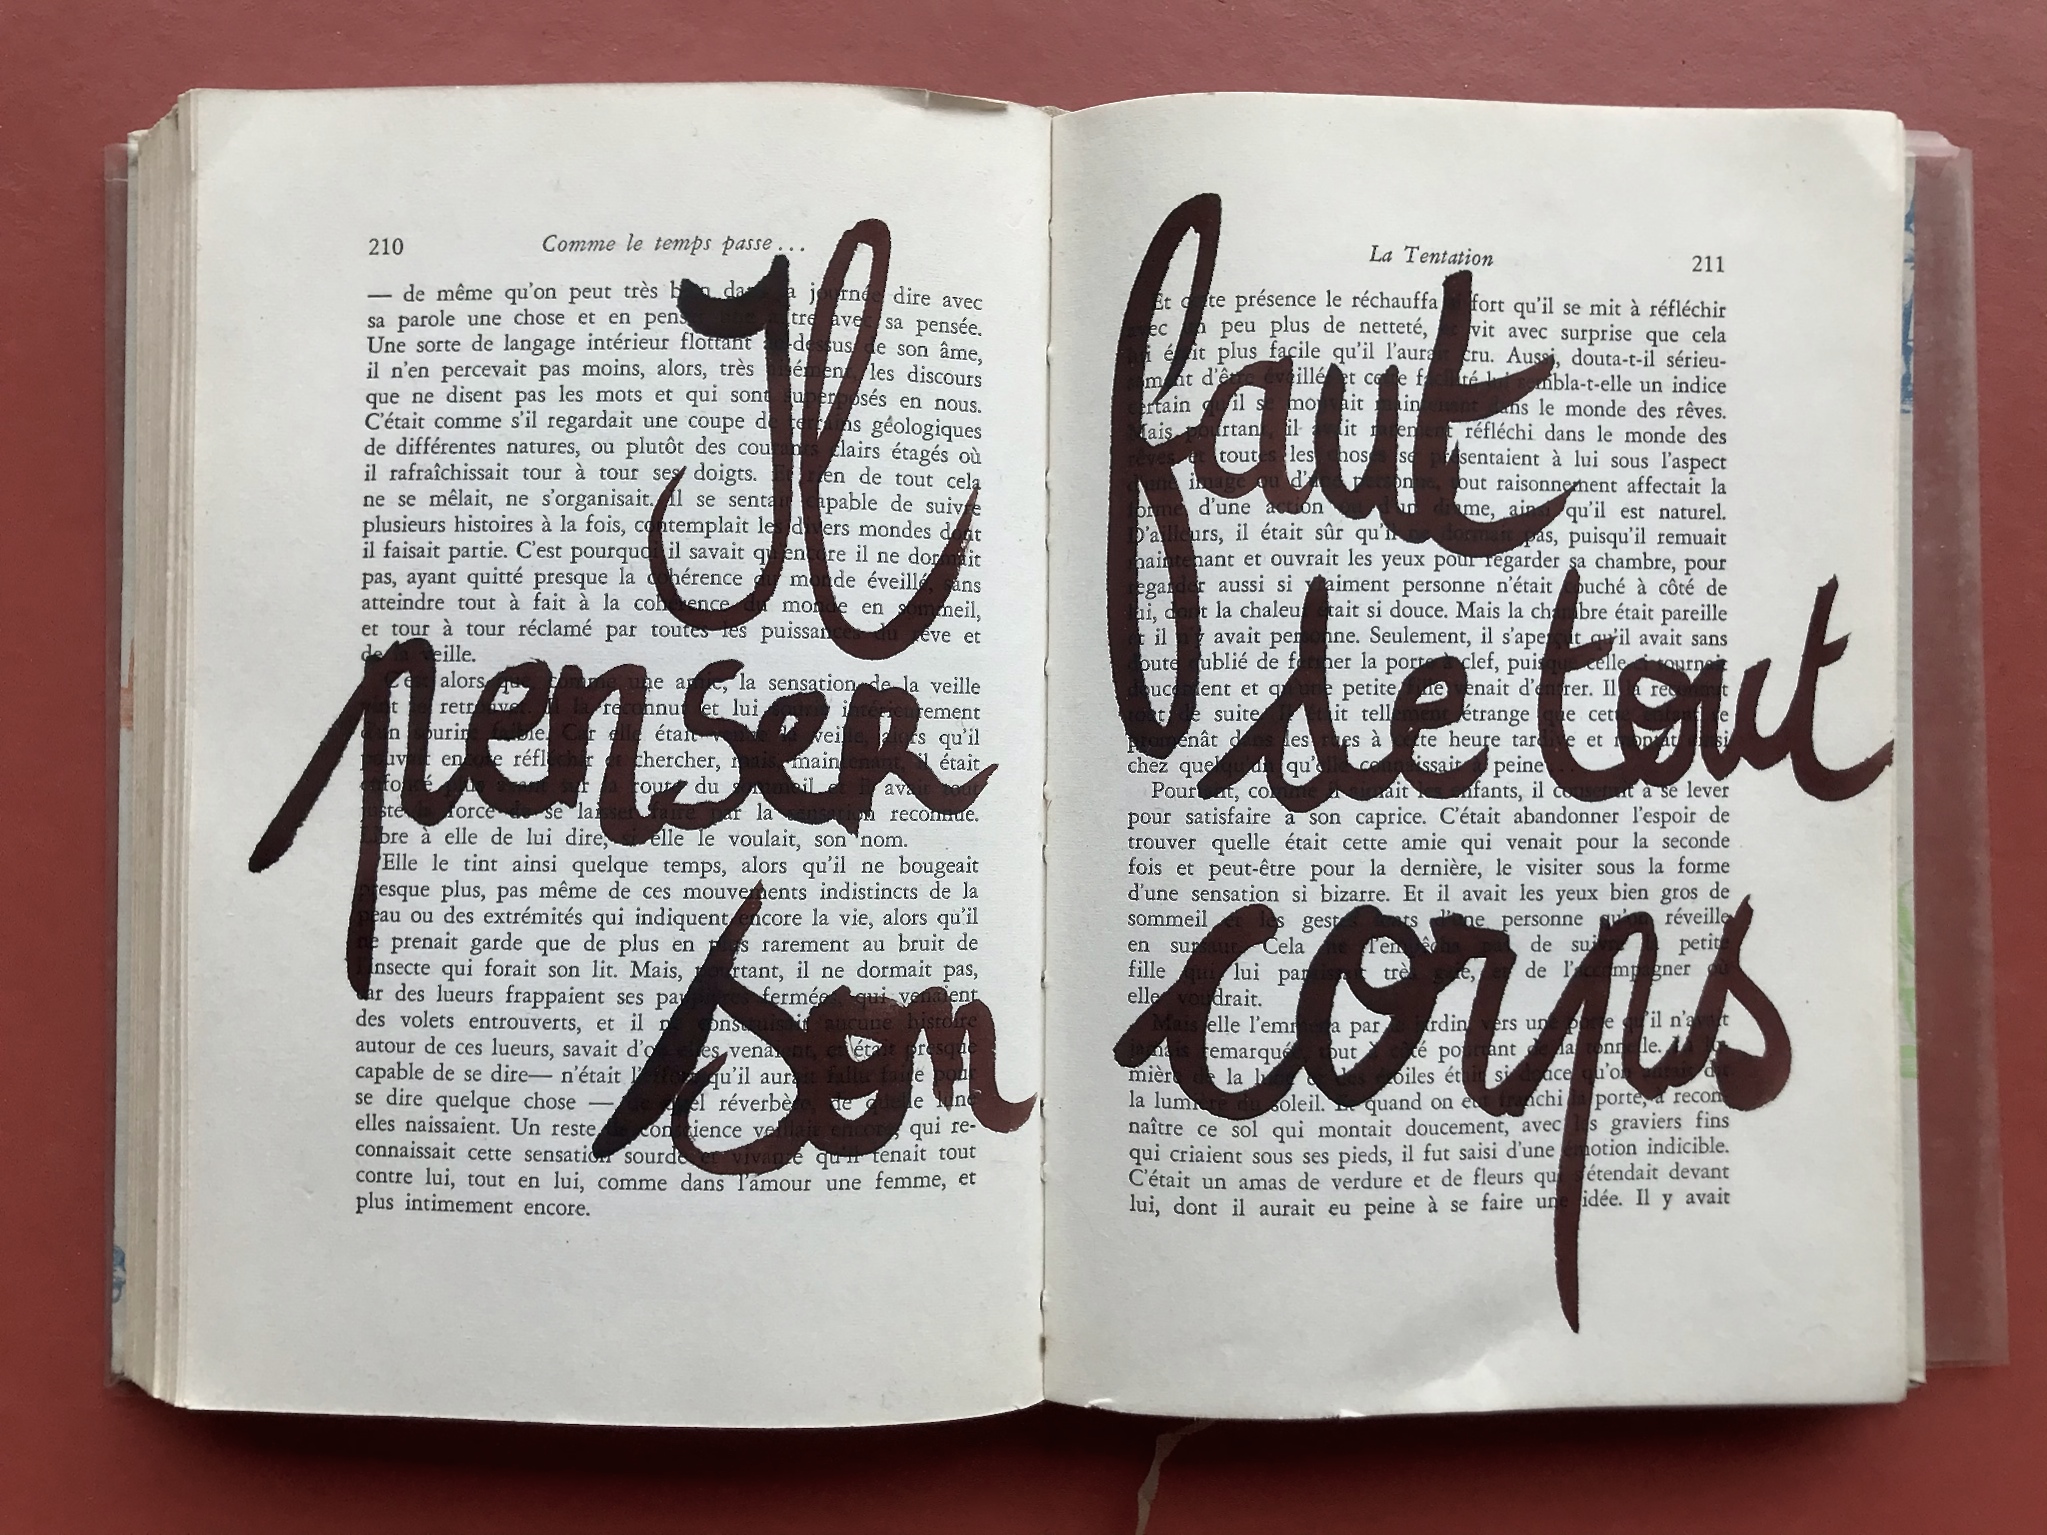 Il faut
penser de tout
son corps
210 Comme le temps passe...
— de même qu'on peut très bien dans la journée dire avec
sa parole une chose et en penser une autre avec sa pensée.
Une sorte de langage intérieur flottant au-dessus de son âme,
il n'en percevait pas moins, alors, très aisément, les discours
que ne disent pas les mots et qui sont superposés en nous.
C'était comme s'il regardait une coupe de terrains géologiques
de différentes natures, ou plutôt des courants clairs étagés où
il rafraîchissait tour à tour ses doigts. Et rien de tout cela
ne se mêlait, ne s'organisait. Il se sentait capable de suivre
plusieurs histoires à la fois, contemplait les divers mondes dont
il faisait partie. C'est pourquoi il savait qu'encore il ne dormait
pas, ayant quitté presque la cohérence du monde éveillé, sans
atteindre tout à fait à la cohérence du monde en sommeil,
et tour à tour réclamé par toutes les puissances du rêve et
de la veille.
C'est alors que, comme une amie, la sensation de la veille
vint se retrouver. Il la reconnut et lui sourit intérieurement
d'un sourire faible. Car elle était venue la veille, alors qu'il
pouvait encore réfléchir et chercher, mais, maintenant, il était
enfoncé plus avant sur la route du sommeil et il avait tout
juste la force de se laisser faire par la sensation reconnue.
Libre à elle de lui dire, si elle le voulait, son nom.
Elle le tint ainsi quelque temps, alors qu'il ne bougeait
presque plus, pas même de ces mouvements indistincts de la
peau ou des extrémités qui indiquent encore la vie, alors qu'il
ne prenait garde que de plus en plus rarement au bruit de
l'insecte qui forait son lit. Mais, pourtant, il ne dormait pas,
car des lueurs frappaient ses paupières fermées, qui venaient
des volets entrouverts, et il ne construisait aucune histoire
autour de ces lueurs, savait d'où elles venaient, et était presque
capable de se dire— n'était l'effort qu'il aurait fallu faire pour
se dire quelque chose — de quel réverbère, de quelle lune
elles naissaient. Un reste de conscience veillait encore, qui re-
connaissait cette sensation sourde et vivante qu'il tenait tout
contre lui, tout en lui, comme dans l'amour une femme, et
plus intimement encore.
La Tentation 211
Et cette présence le réchauffa si fort qu'il se mit à réfléchir
avec un peu plus de netteté, et vit avec surprise que cela
lui était plus facile qu'il l'aurait cru. Aussi, douta-t-il sérieu-
sement d'être éveillé et cette facilité lui sembla-t-elle un indice
certain qu'il se mouvait maintenant dans le monde des rêves.
Mais pourtant, il avait rarement réfléchi dans le monde des
rêves et toutes les choses se présentaient à lui sous l'aspect
d'une image ou d'une personne, tout raisonnement affectait la
forme d'une action ou d'un drame, ainsi qu'il est naturel.
D'ailleurs, il était sûr qu'il ne dormait pas, puisqu'il remuait
maintenant et ouvrait les yeux pour regarder sa chambre, pour
regarder aussi si vraiment personne n'était couché à côté de
lui, dont la chaleur était si douce. Mais la chambre était pareille
et il n'y avait personne. Seulement, il s'aperçut qu'il avait sans
doute oublié de fermer la porte à clef, puisque celle-ci tournait
doucement et qu'une petite fille venait d'entrer. Il la reconnut
tout de suite. Il était tellement étrange que cette enfant se
promenât dans les rues à cette heure tardive et montât ainsi
chez quelqu'un qu'elle connaissait à peine...
Pourtant, comme il aimait les enfants, il consentit à se lever
pour satisfaire à son caprice. C'était abandonner l'espoir de
trouver quelle était cette amie qui venait pour la seconde
fois et peut-être pour la dernière, le visiter sous la forme
d'une sensation si bizarre. Et il avait les yeux bien gros de
sommeil et les gestes lents d'une personne qu'on réveille
en sursaut. Cela ne l'empêcha pas de suivre la petite
fille qui lui paraissait très gaie, et de l'accompagner où
elle voudrait.
Mais elle l'emmena par le jardin vers une porte qu'il n'avait
jamais remarquée, tout à côté pourtant de la tonnelle. La lu-
mière de la lune et des étoiles était si douce qu'on aurait dit
la lumière du soleil. Et quand on eut franchi la porte, à recon-
naître ce sol qui montait doucement, avec les graviers fins
qui criaient sous ses pieds, il fut saisi d'une émotion indicible.
C'était un amas de verdure et de fleurs qui s'étendait devant
lui, dont il aurait eu peine à se faire une idée. Il y avait